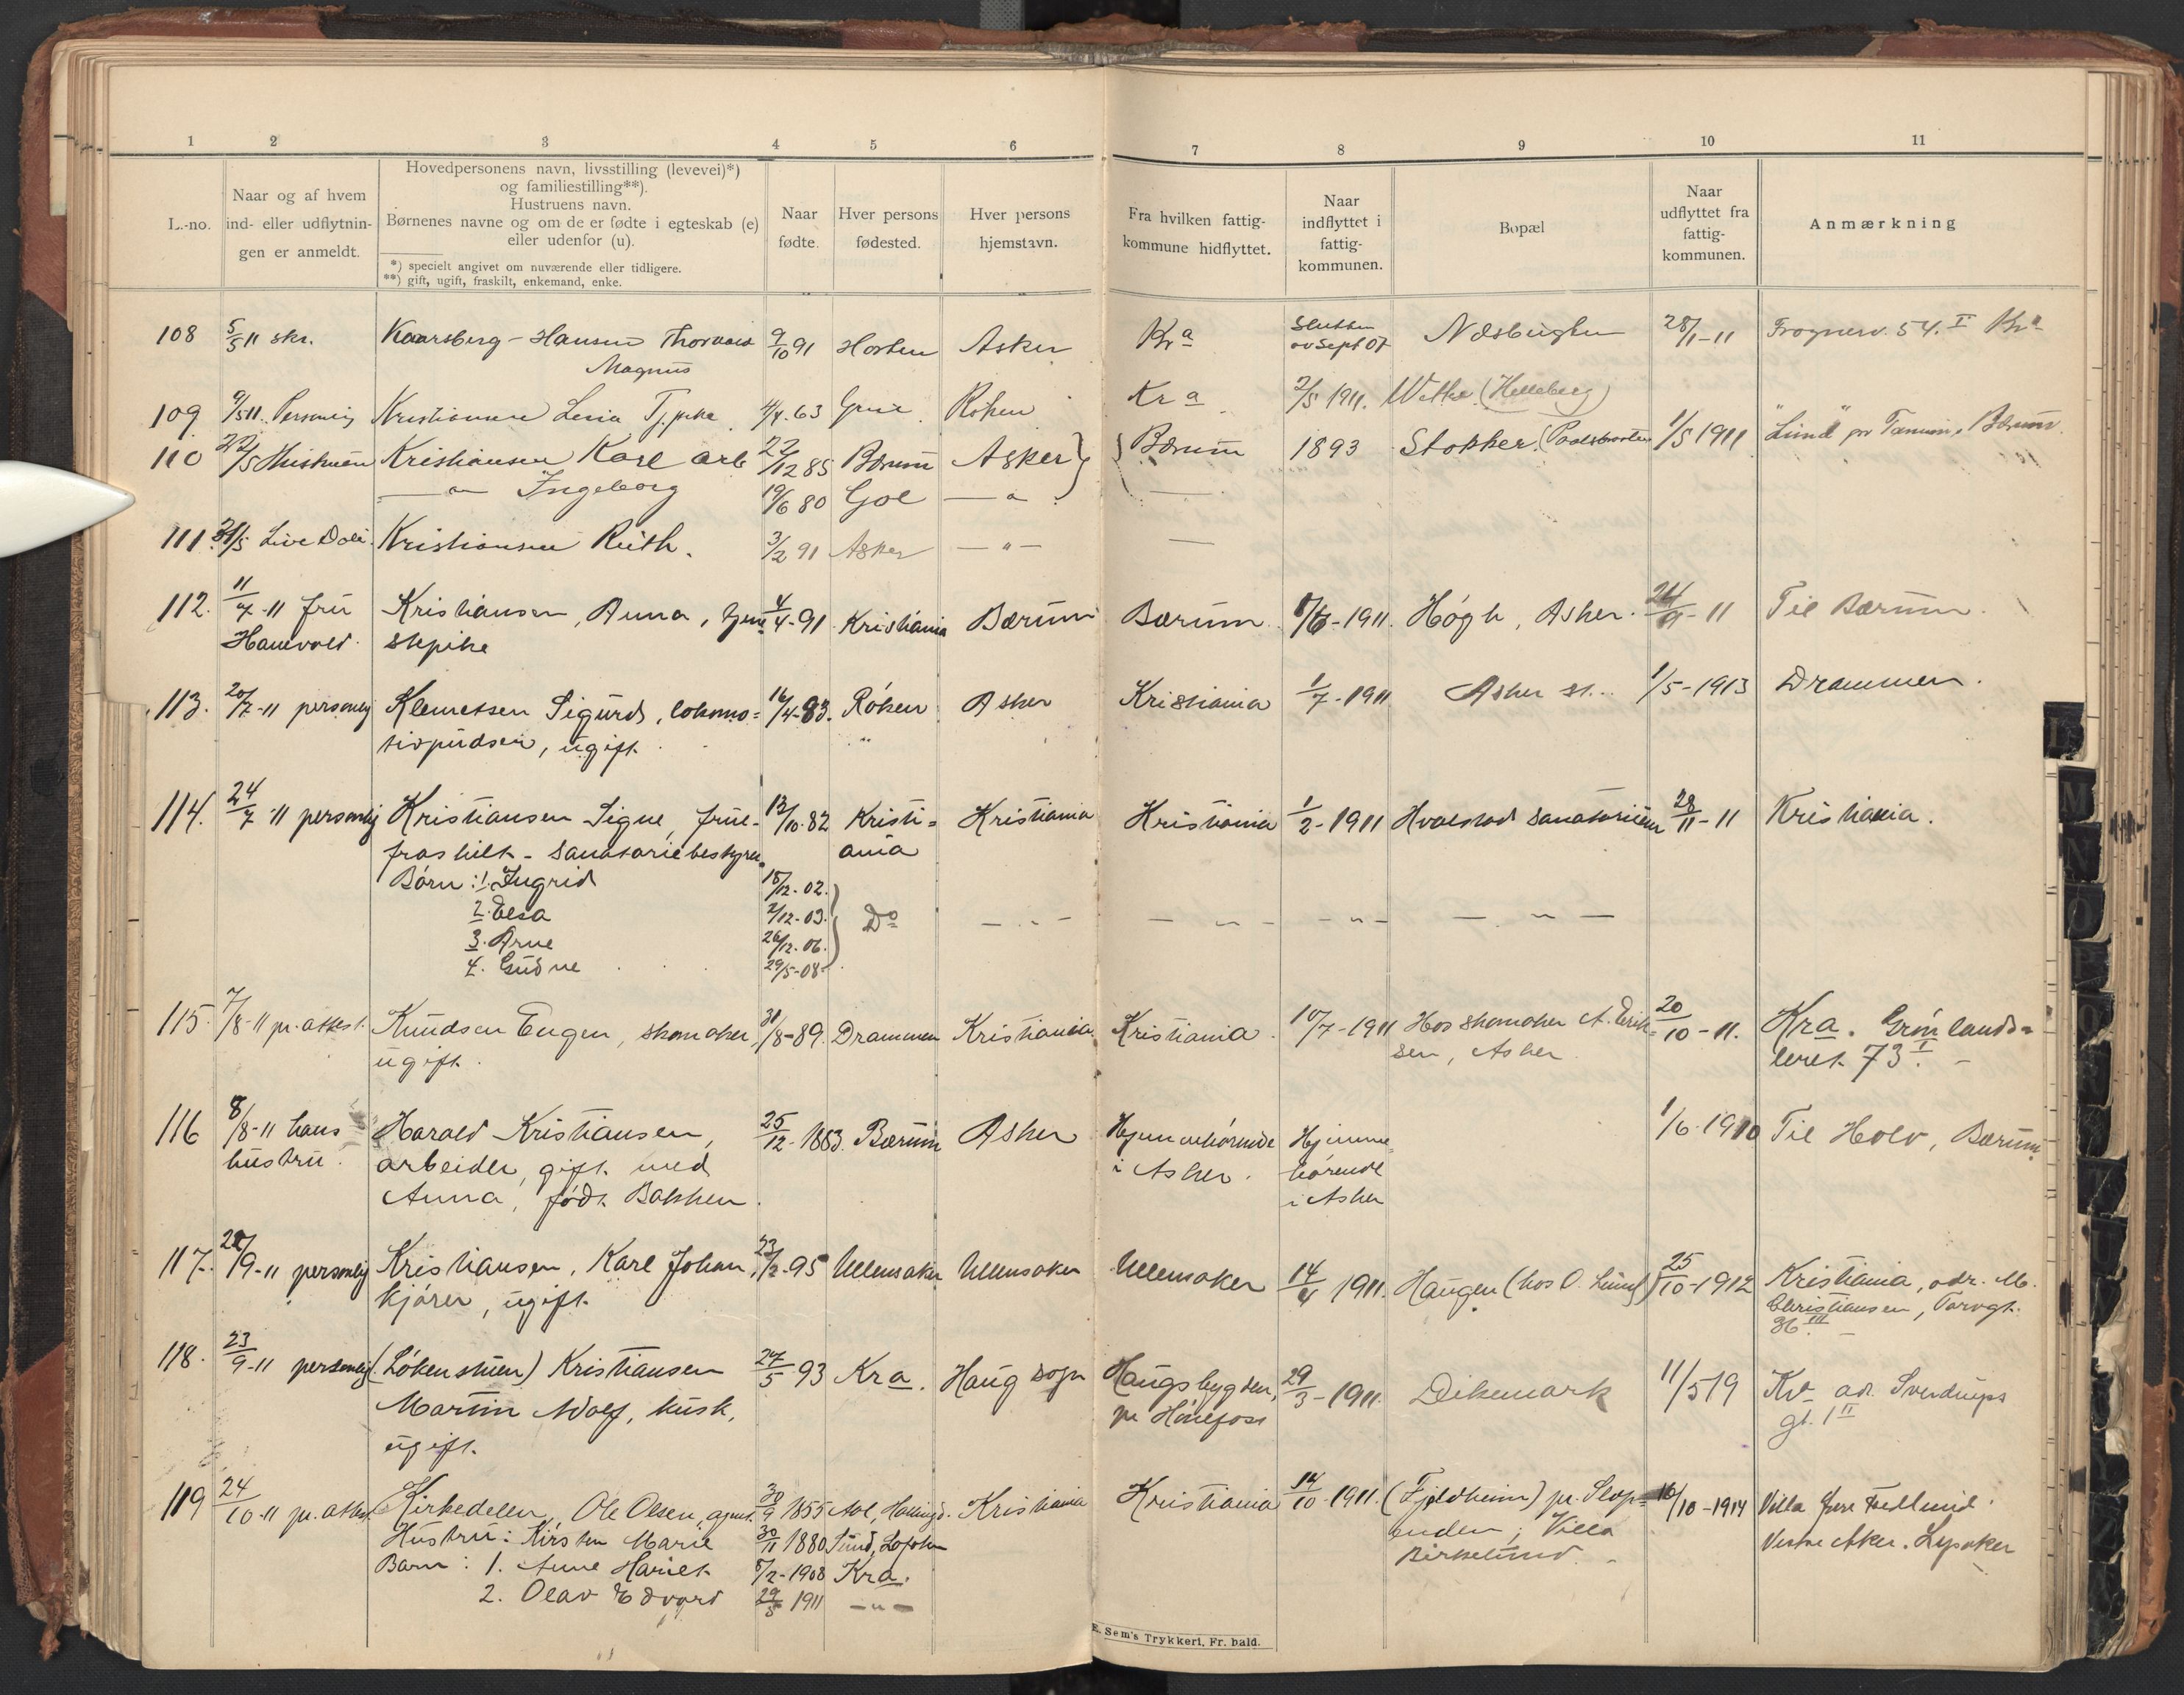 1 2 3 4 5 6 7 8 9 10 11
L.-no.
Naar og af hvem
ind- eller udflytnin-
gen er anmeldt.
Hovedpersonens navn, livsstilling (levevei)*)
og familiestilling**).
Hustruens navn.
Børnenes navne og om de er fødte i egteskab (e)
eller udenfor (u).
*) specielt angivet om nuværende eller tidligere.
**) gift, ugift, fraskilt, enkemand, enke.
Naar
fødte.
Hver persons
fødested.
Hver persons
hjemstavn.
Fra hvilken fattig-
kommune hidflyttet.
Naar
indflyttet i
fattig-
kommunen.
Bopæl
Naar
udflyttet fra
fattig-
kommunen.
Anmærkning
108 5/5 11 skr. Kaarsberg-Hansen Thorvald 9/10 91 Horten Asker Kra Slutten av Sept 07 Næsbugten 28/1-11 Frognerv. 54. II Kra
Magnus
109 9/5 11. Personlig Kristiansen Tj.pike 4/4. 63 Røken Kra 2/5 1911. (Helleberg)
110 22/5 Hustruen Kristiansen Karl arb 22/12 85 Bærum Asker } { Bærum 1893 Stokker 1/5 1911 "Lund" pr Tanum, Bærum.
— " — Ingeborg 19/6 80 Gol — " —
111. 31/5 Kristiansen Ruth. 3/2 91 Asker — " — —
112. 11/7-11 fru Kristiansen, Anna, tjene 4/4-91 Kristiania Bærum Bærum 8/6-1911. Høgh, Asker. 24/9-11 Til Bærum.
Hanevold. stpike
113. 20/7-11 personlig Klemetsen Sigurd, lokomo= 16/4-83. Røken Asker Kristiania 1/7-1911 Asker st. 1/5-1913 Drammen.
tivpudser, ugift. "
114. 24/7-11 personlig Kristiansen Signe, frue- 13/10-82 Kristi= Kristiania Kristiania 1/2-1911 Hvalstad Sanatorium 28/11-11 Kristiania.
fraskilt - Sanatoriebestyrer. ania
Børn: 1. Ingrid 18/12-02.
2. Elsa 2/12-03. Do — " — — " — — " — — " —
3. Arne 26/12-06.
4. Gudne 29/5-08.
115. 7/8-11 pr. attest. Knudsen Eugen, skomaker, 31/8-89. Drammen Kristiania. Kristiania. 10/7-1911 Hos skomaker A. Erik= 20/10-11. Kra. Grønlands=
ugift. sen, Asker. leret 73 I. -
116 8/8-11 hans Harald Kristiansen, 25/12-1883. Bærum Asker Hjemmehørende Hjemme= 1/6-1910 Til Holv, Bærum.
hustru. arbeider, gift med i Asker. hørende
Anna, født Bakken. i Asker
117. 21/9-11 personlig Kristiansen, Karl Johan, 23/2-95 Ullensaker Ullensaker Ullensaker 14/4 1911. Haugen (hos O. Lund) 25/10-1912 Kristiania, adr. M.
kjører, ugift. Christiansen, Torvgt.
36 III -
118. 23/9-11 personlig (Løkenstuen) Kristiansen 27/5-93 Kra. Haug sogn Haugsbygden, 29/3-1911. Dikemark 11/5 19 Kr. ad. Sverdrups
Martin Adolf, husk, pr Hønefoss gt. 1 II
ugift.
119 24/10-11 pr. attest. Kirkedelen, Ole Olsen, agent. 30/9 1855 Aal, Hallingd. Kristiania Kristiania 14/10-1911. (Fjeldheim) pr. Slep= 16/10-1914 Villa
Hustru: Kirsten Marie 30/11 1880 Sund, Lofoten enden; Villa Vestre Aker. Lysaker
Barn: 1. Anne Hariet 8/2-1908 Kra. Birkelund. -
2. Olav Edvard 29/5 1911 — " —
E. Sem's Trykkeri, Fr. hald.
L
M
N
O